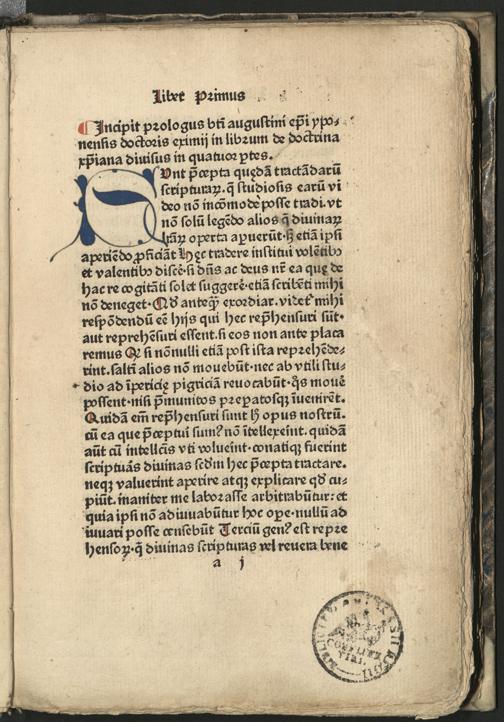 Liber Primus
Incipit prologus bti augustini epi ypo-
nensis doctoris eximij in librum de doctrina
xpiana diuisus in quatuor ptes.
Sunt pcepta quedā tractādarū
scripturaꝝ. q̄ studiosis earū vi
deo nō incōmode posse tradi. vt
nō solū legēdo alios q̄ diuinaꝝ
lrāꝝ operta apuerūt. ꝫ etiā ipsi
aperiēdo ꝓficiāt Hęc tradere institui volētibꝰ
et valentibꝰ discē. si dn̄s ac deus nr̄ ea que de
hac re cogitāti solet suggerē. etiā scribēti mihi
nō deneget. Qd̄ anteqꝫ exordiar. videt᷑ mihi
respōdendū eē hijs qui hec rep̄hensuri sūt.
aut reprehēsuri essent. si eos non ante placa
remus Qꝛ si nōnulli etiā post ista reprehēde-
rint. saltī alios nō mouebūt. nec ab vtili stu-
dio ad īpericię pigriciā reuocabūt. qͦs mouē
possent. nisi p̄munitos prepatosqꝫ īuenirēt.
Quidā em̄ rep̄hensuri sunt h̄ opus nostrū.
cū ea que p̄ceptui sumꝰ nō ītellexeint. quidā
aūt cū intellc̄is vti volueint. conatiqꝫ fuerint
scripturās diuinas scdm̄ hec p̄cepta tractare.
neqꝫ valuerint aperire atqꝫ explicare qd̄ cu-
piūt. inaniter me laborasse arbitrabūtur: et
quia ipsi nō adiuuabūtur hoc oꝑe. nullū ad
iuuari posse censebūt Terciū genꝰ est repre
hensoꝝ. q̄ diuinas scripturas vel reuera bene
a j
COMPLUTE